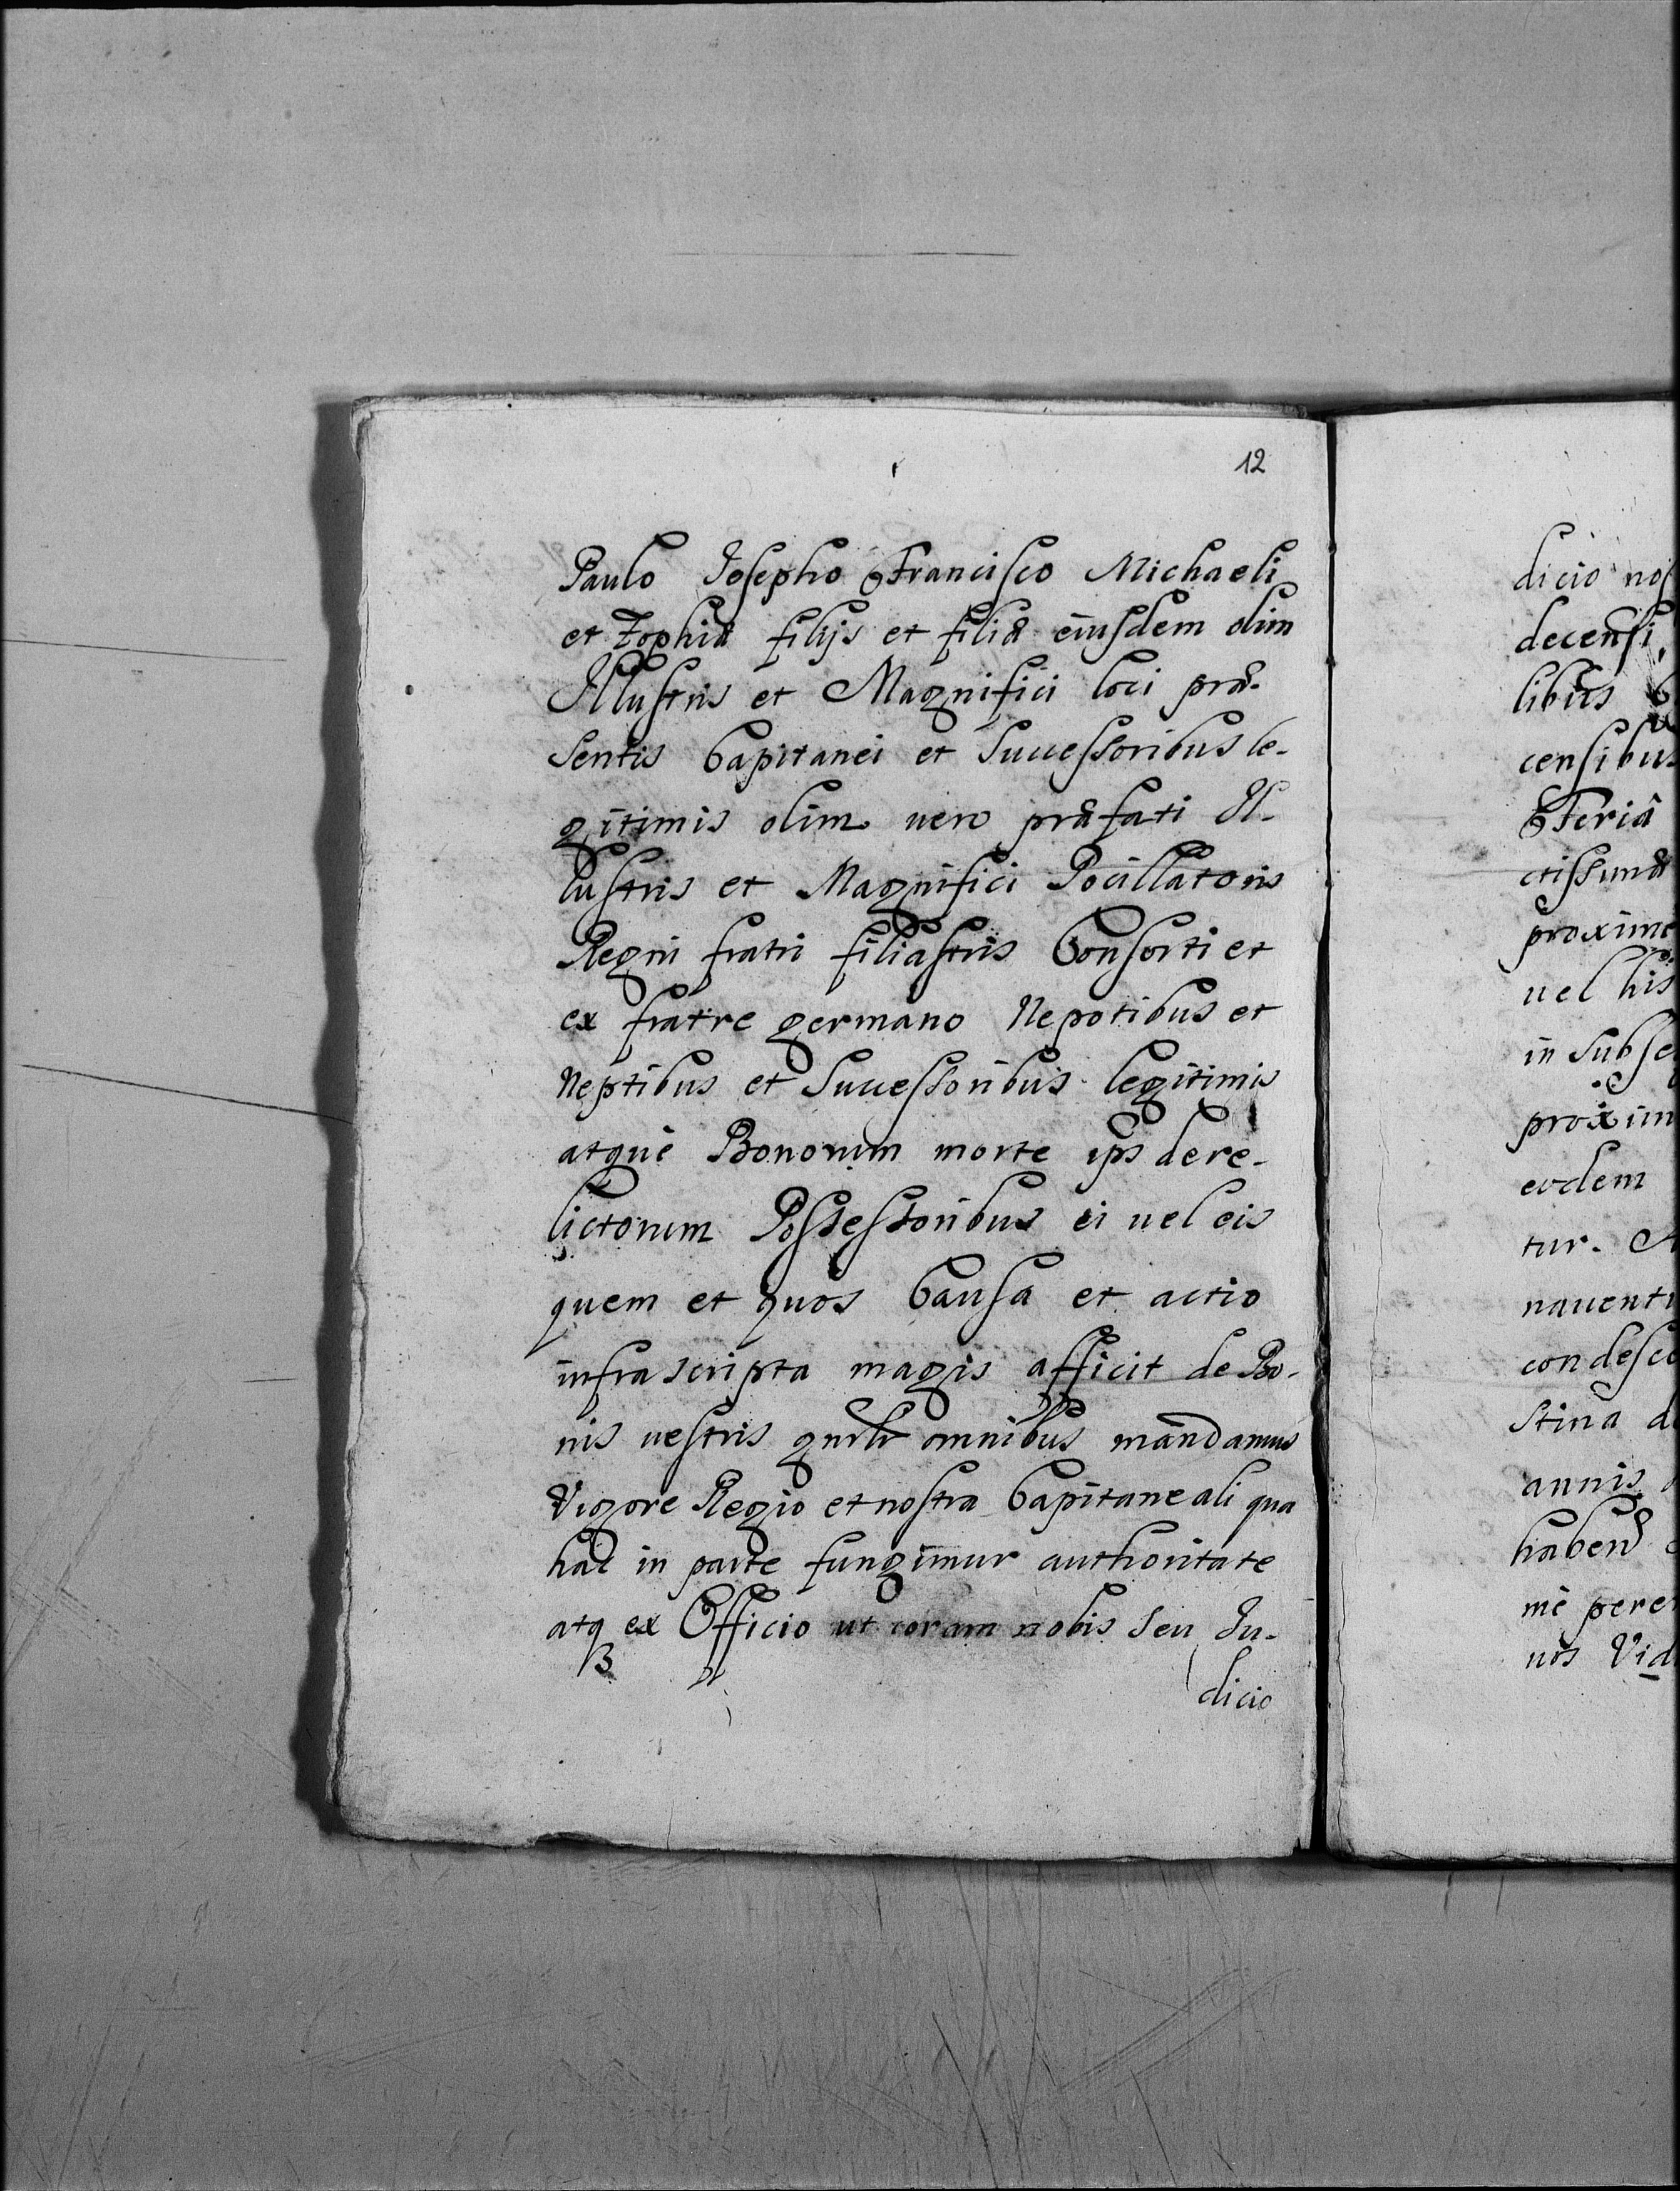 12
Paulo Josepho Francisco Michaeli
et Zophiæ filijs et filiæ eiusdem olim
Illustris et Magnifici loci præ-
sentis Capitanei et Successoribus le-
gitimis olim vero præfati Il-
lustris et Magnifici Pocillatoris
Regni fratri filiastris Consorti et
ex fratre germano Nepotibus et
Neptibus et Successoribus legitimis
atque Bonorum morte ips dere-
lictorum Possessoribus ei vel eis
quem et quos Causa et actio
infrascripta magis afficit de Bo-
nis vestris gnrlr omnibus mandamus
Vigore Regio et nostra Capitaneali qua
hac in parte fungimur authoritate
atq ex Officio ut coram nobis seu Ju-
dicio
dicio nos
decensi
libus
censibus
Feria
ctissimæ
proxime
vel his
in subse
proxim
eodem
tur. A
navent
condesce
stina d
annis
habend
me pere
nos Vid